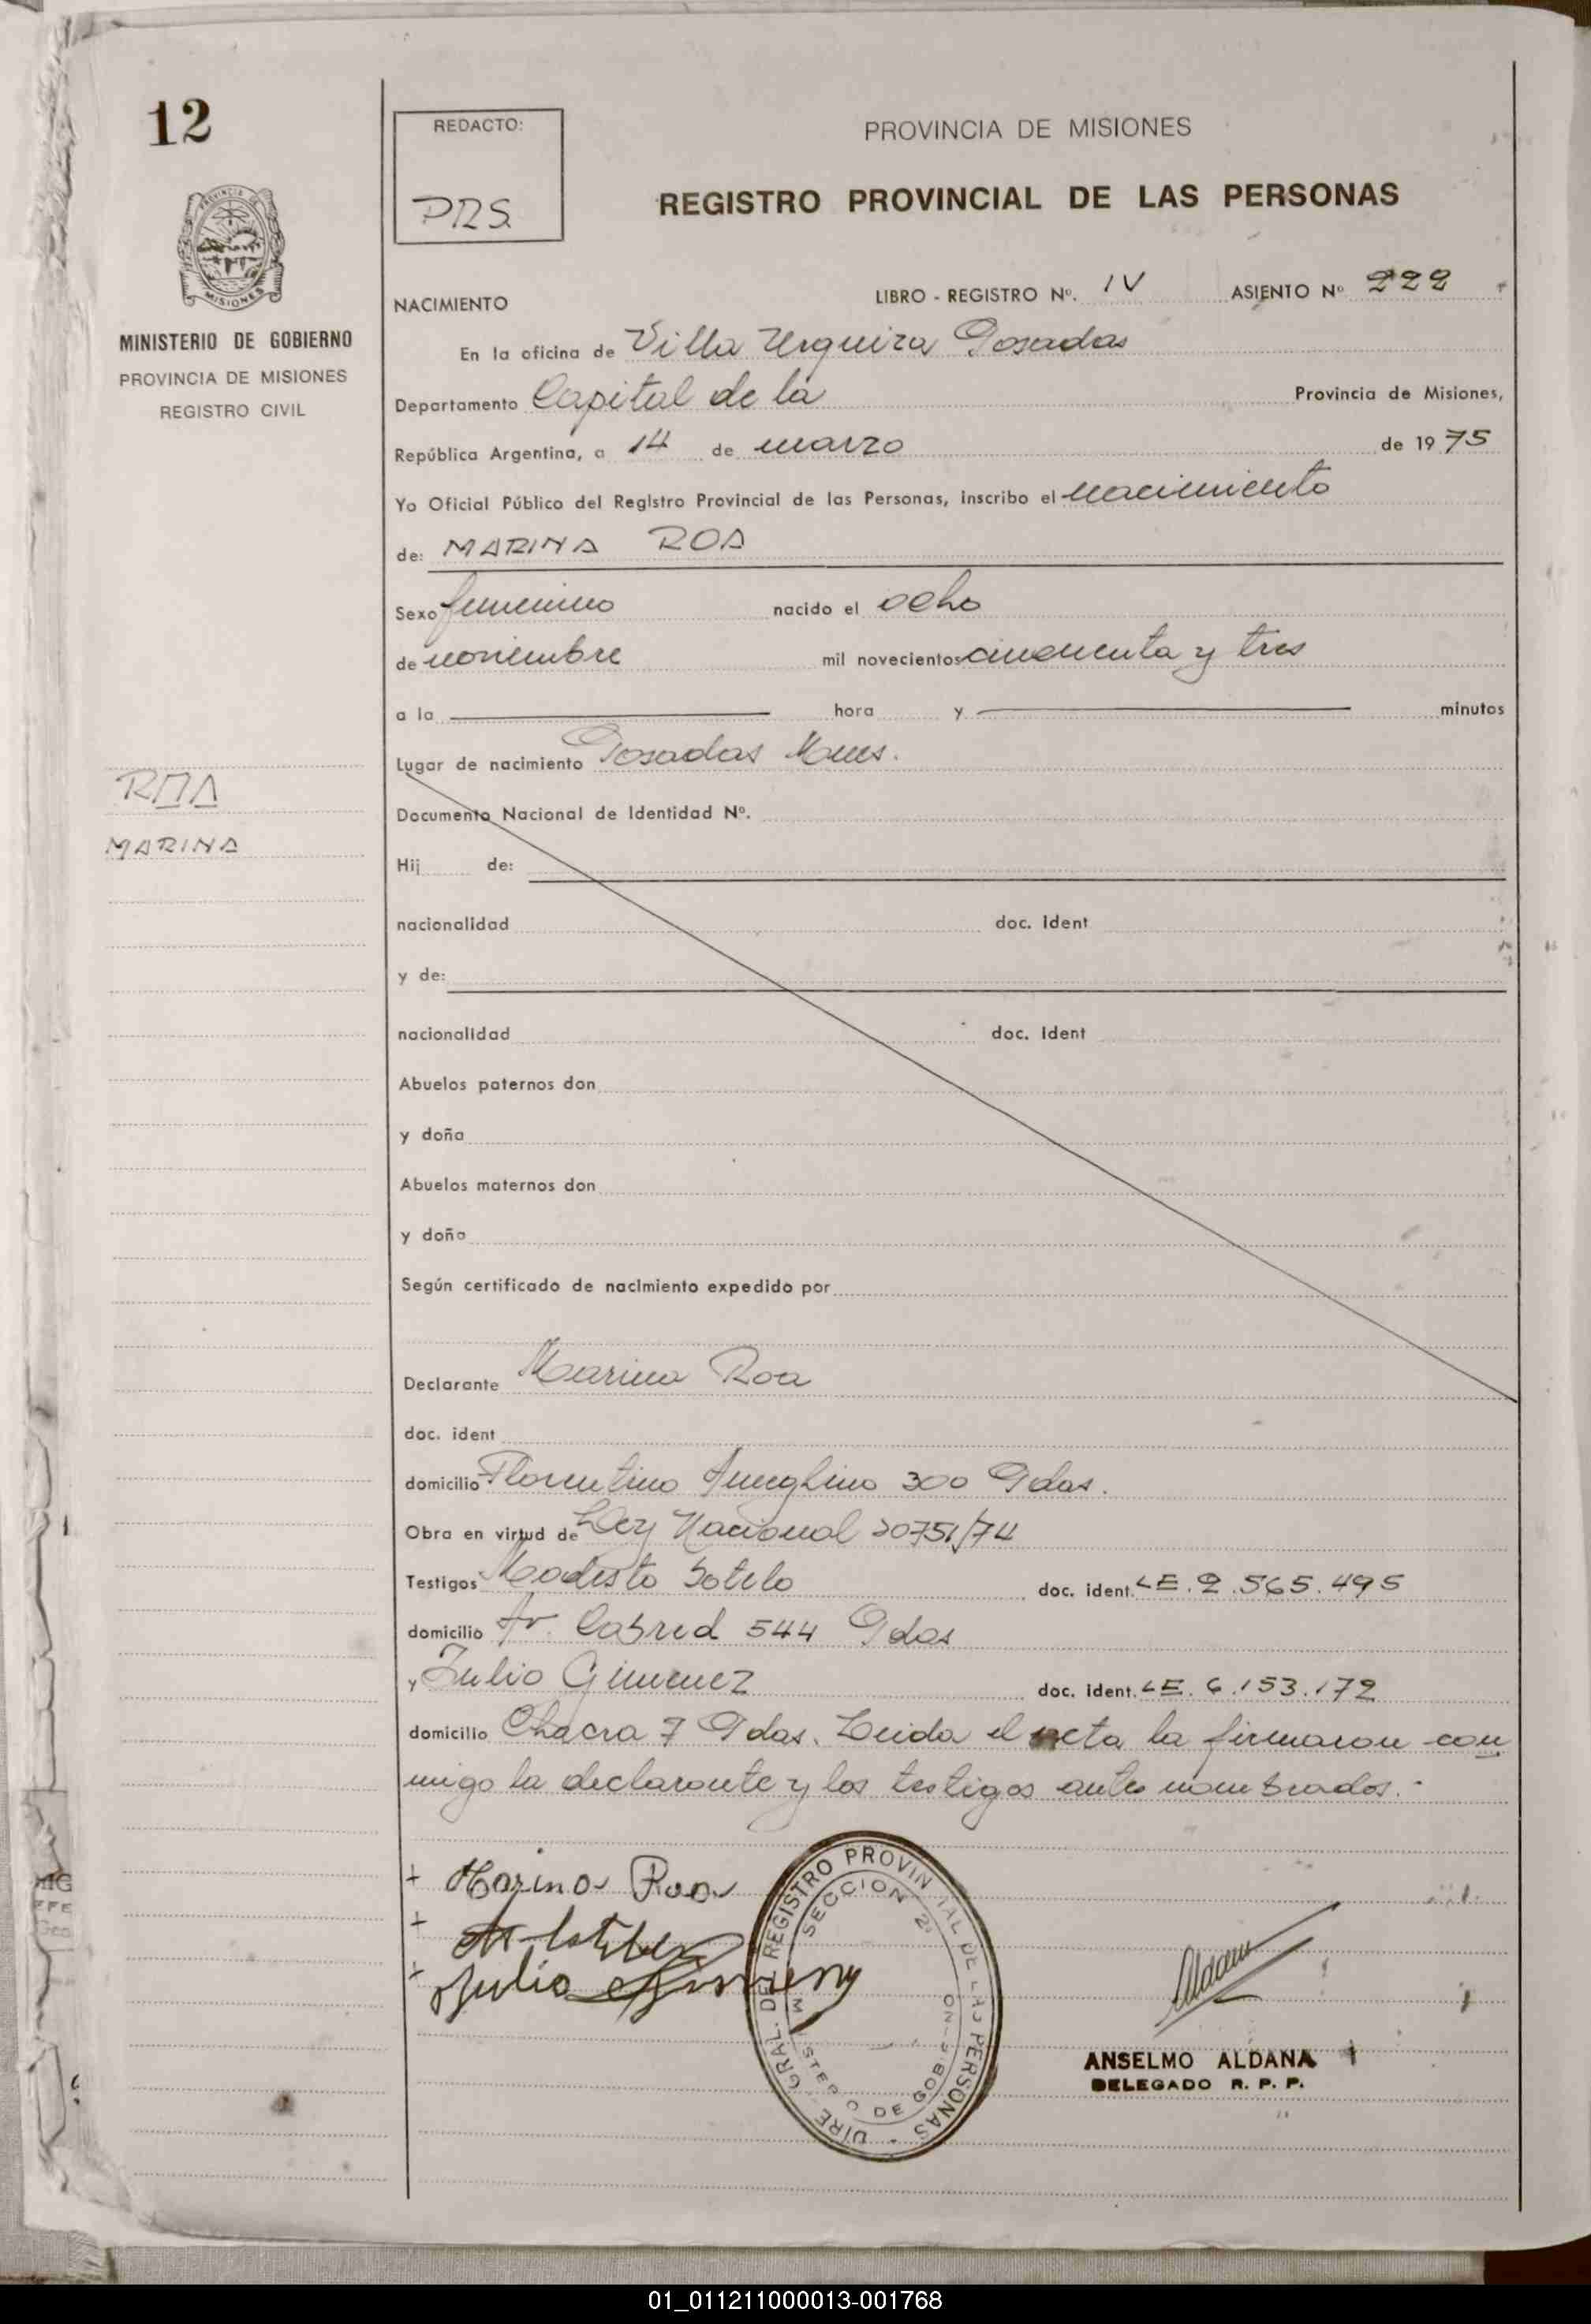 12
REDACTO:
PRS.
PROVINCIA DE MISIONES
REGISTRO PROVINCIAL DE LAS PERSONAS
PROVINCIA
MISIONES
MINISTERIO DE GOBIERNO
PROVINCIA DE MISIONES
REGISTRO CIVIL
NACIMIENTO LIBRO - REGISTRO Nº. IV ASIENTO Nº 222
En la oficina de Villa Urquiza Posadas
Departamento Capital de la Provincia de Misiones,
República Argentina, a 14 de marzo de 1975
Yo Oficial Público del Registro Provincial de las Personas, inscribo el nacimiento
de: MARINA ROA
Sexo femenino nacido el ocho
de noviembre mil novecientos cincuenta y tres
a la hora y minutos
Lugar de nacimiento Posadas Mnes.
ROA
MARINA
Documento Nacional de Identidad Nº.
Hij de:
nacionalidad doc. ident
y de:
nacionalidad doc. ident
Abuelos paternos don
y doña
Abuelos maternos don
y doña
Según certificado de nacimiento expedido por
Declarante Marina Roa
doc. ident
domicilio Florentino Ameghino 300 Pdas.
Obra en virtud de Ley Nacional 20751/74
Testigos Modesto Sotelo doc. ident. LE. 2.565.495
domicilio Av. Cabred 544 Pdas
y Julio Gimenez doc. ident. LE. 6.153.172
domicilio Chacra 7 Pdas. Leida el acta la firmaron con
migo la declarante y los testigos antes nombrados.-
+ Marina Roa
+
+ Julio Gimenez
DIRE GRAL. DEL REGISTRO PROVIN IAL DE LAS PERSONAS
SECCION 2ª
M STER O DE GOBIE NO
ANSELMO ALDANA
DELEGADO R. P. P.
01_011211000013-001768